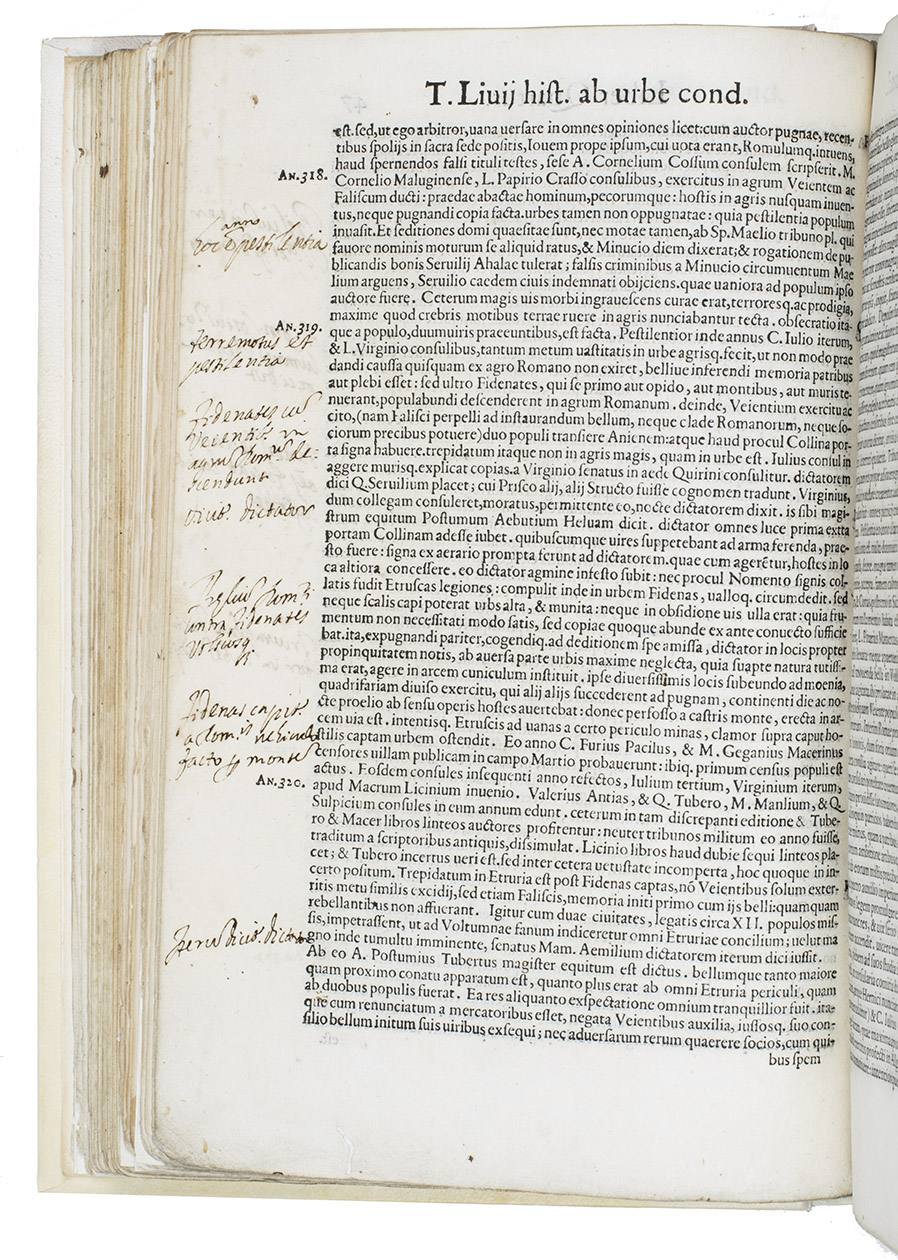 T. Liuij hist. ab urbe cond.
est. sed, ut ego arbitror, uana uersare in omnes opiniones licet: cum auctor pugnae, recen-
tibus spolijs in sacra sede positis, Iouem prope ipsum, cui uota erant, Romulumq. intuens,
haud spernendos falsi tituli testes, sese A. Cornelium Cossum consulem scripserit. M.
An. 318.
Cornelio Maluginense, L. Papirio Crasso consulibus, exercitus in agrum Veientem ac
Faliscum ducti: praedae abactae hominum, pecorumque: hostis in agris nusquam inuen-
tus, neque pugnandi copia facta. urbes tamen non oppugnatae: quia pestilentia populum
inuasit. Et seditiones domi quaesitae sunt, nec motae tamen, ab Sp. Maelio tribuno pl. qui
anno
hoc pestilentia
fauore nominis moturum se aliquid ratus, & Minucio diem dixerat; & rogationem de pu-
blicandis bonis Seruilij Ahalae tulerat; falsis criminibus a Minucio circumuentum Mae
lium arguens, Seruilio caedem ciuis indemnati obijciens. quae uaniora ad populum ipso
auctore fuere. Ceterum magis uis morbi ingrauescens curae erat, terroresq. ac prodigia,
maxime quod crebris motibus terrae ruere in agris nunciabantur tecta. obsecratio ita-
An. 319.
que a populo, duumuiris praeeuntibus, est facta. Pestilentior inde annus C. Iulio iterum,
terremotus et
pestilentia
& L. Virginio consulibus, tantum metum uastitatis in urbe agrisq. fecit, ut non modo prae
dandi caussa quisquam ex agro Romano non exiret, belliue inferendi memoria patribus
aut plebi esset: sed ultro Fidenates, qui se primo aut opido, aut montibus, aut muris te-
nuerant, populabundi descenderent in agrum Romanum. deinde, Veientium exercitu ac
Fidenates cus
Veientib. in
agrum Rom. de-
scendunt
cito, (nam Falisci perpelli ad instaurandum bellum, neque clade Romanorum, neque so-
ciorum precibus potuere) duo populi transiere Anienem: atque haud procul Collina por-
ta signa habuere. trepidatum itaque non in agris magis, quam in urbe est. Iulius consul in
aggere murisq. explicat copias. a Virginio senatus in aede Quirini consulitur. dictatorem
dici Q. Seruilium placet; cui Prisco alij, alij Structo fuisse cognomen tradunt. Virginius,
dicit. dictator
dum collegam consuleret, moratus, permittente eo, nocte dictatorem dixit. is sibi magi-
strum equitum Postumum Aebutium Heluam dicit. dictator omnes luce prima extra
portam Collinam adesse iubet. quibuscumque uires suppetebant ad arma ferenda, prae-
sto fuere: signa ex aerario prompta ferunt ad dictatorem. quae cum agerētur, hostes in lo
ca altiora concessere. eo dictator agmine infesto subit: nec procul Nomento signis col-
latis fudit Etruscas legiones: compulit inde in urbem Fidenas, ualloq. circumdedit. sed
neque scalis capi poterat urbs alta, & munita: neque in obsidione uis ulla erat: quia fru-
contra Fidenates
mentum non necessitati modo satis, sed copiae quoque abunde ex ante conuecto sufficie
bat. ita, expugnandi pariter, cogendiq. ad deditionem spe amissa, dictator in locis propter
propinquitatem notis, ab auersa parte urbis maxime neglecta, quia suapte natura tutissi-
ma erat, agere in arcem cuniculum instituit. ipse diuersissimis locis subeundo ad moenia,
quadrifariam diuiso exercitu, qui alij alijs succederent ad pugnam, continenti die ac no-
Fidenas capit.
cte proelio ab sensu operis hostes auertebat: donec perfosso a castris monte, erecta in ar-
cem uia est. intentisq. Etruscis ad uanas a certo periculo minas, clamor supra caput ho-
stilis captam urbem ostendit. Eo anno C. Furius Pacilus, & M. Geganius Macerinus
facto monte
censores uillam publicam in campo Martio probauerunt: ibiq. primum census populi est
An. 320.
actus. Eosdem consules insequenti anno refectos, Iulium tertium, Virginium iterum,
apud Macrum Licinium inuenio. Valerius Antias, & Q. Tubero, M. Manlium, & Q.
Sulpicium consules in eum annum edunt. ceterum in tam discrepanti editione & Tube-
ro & Macer libros linteos auctores profitentur: neuter tribunos militum eo anno fuisse,
traditum a scriptoribus antiquis, dissimulat. Licinio libros haud dubie sequi linteos pla-
cet; & Tubero incertus ueri est. sed inter cetera uetustate incomperta, hoc quoque in in-
certo positum. Trepidatum in Etruria est post Fidenas captas, nō Veientibus solum exter-
ritis metu similis excidij, sed etiam Faliscis, memoria initi primo cum ijs belli: quamquam
rebellantibus non affuerant. Igitur cum duae ciuitates, legatis circa XII. populos mis-
sis, impetrassent, ut ad Voltumnae fanum indiceretur omni Etruriae concilium; uelut ma
gno inde tumultu imminente, senatus Mam. Aemilium dictatorem iterum dici iussit.
Ab eo A. Postumius Tubertus magister equitum est dictus. bellumque tanto maiore
quam proximo conatu apparatum est, quanto plus erat ab omni Etruria periculi, quam
ab duobus populis fuerat. Ea res aliquanto exspectatione omnium tranquillior fuit. ita-
que cum renunciatum a mercatoribus esset, negata Veientibus auxilia, iussosq. suo con-
silio bellum initum suis uiribus exsequi; nec aduersarum rerum quaerere socios, cum qui-
bus spem